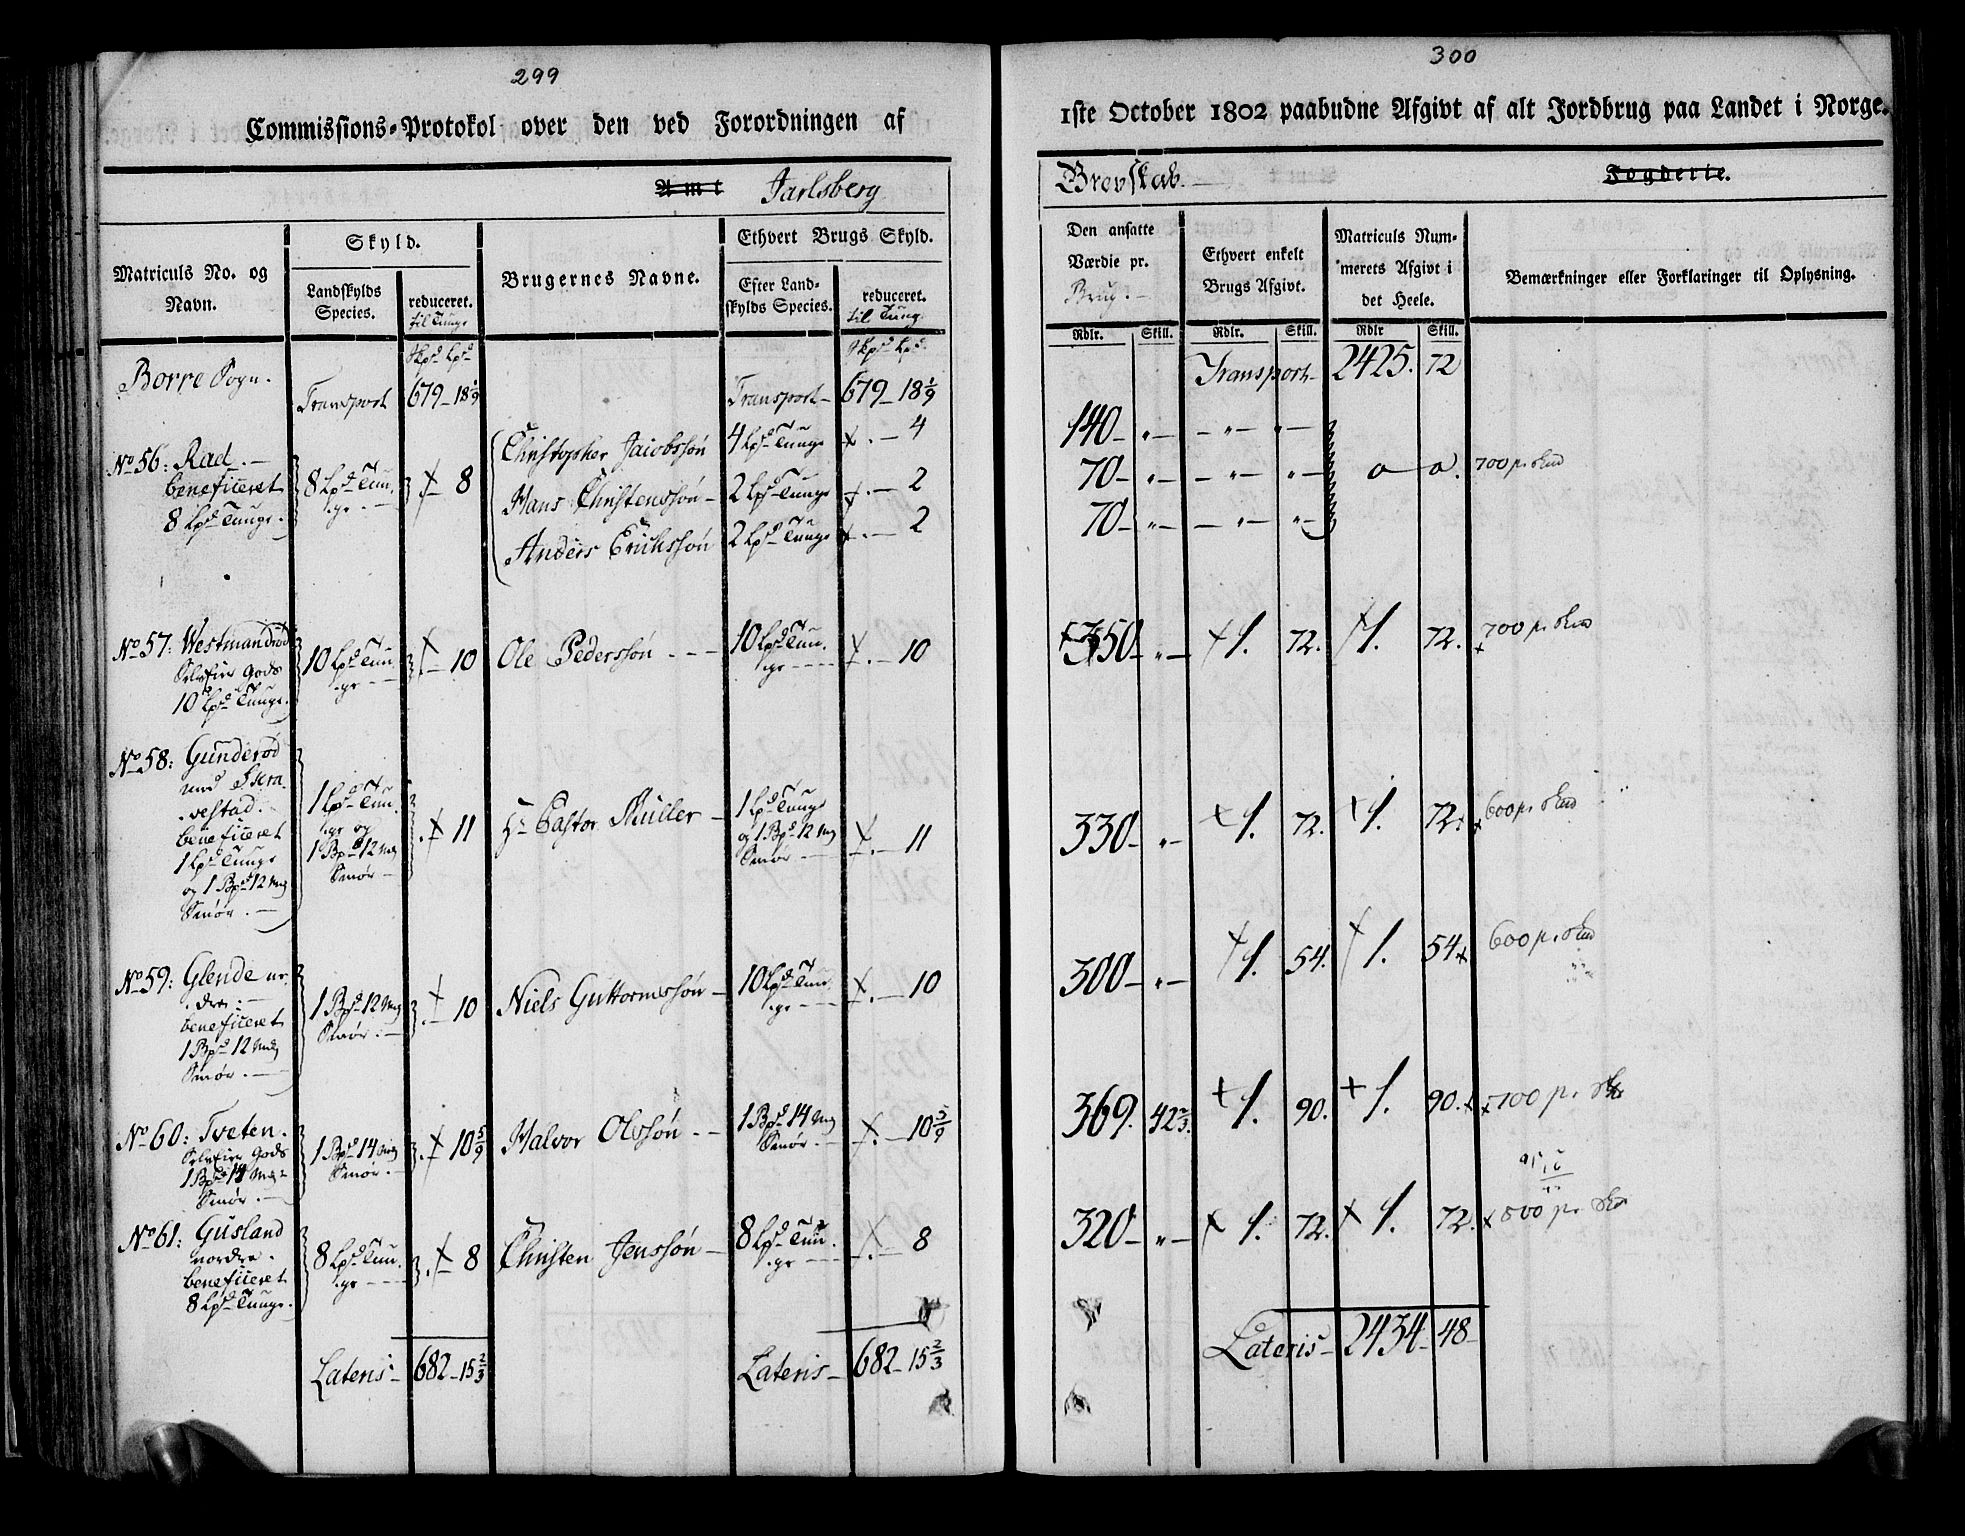 299
Commissions-Protokol over den ved Forordningen af
Amt Jarlsberg
Matriculs No. og Navn.
Skyld.
Landskylds Species.
reduceret. til Tunge
Brugernes Navne.
Ethvert Brugs Skyld.
Efter Landskylds Species.
reduceret. til Tung.
Skpd Lpd
Skpd Lpd
Borre Sogn.
Transport 679 – 18 1/9 Transport – 679 – 18 1/9
No 56: Rad. –
beneficeret
8 Lpd Tunge.
8 Lpd Tun.
ge. –
8
Christopher Jacobssøn 4 Lpd Tunge – 4
Hans Christenssøn – 2 Lpd Tunge – 2
Anders Erichssøn 2 Lpd Tunge – 2
No 57: Westmandrød
Selveier Gods
10 Lpd Tunge.
10 Lpd Tun.
ge – –
10
Ole Pederssøn – – –
10 Lpd Tun.
ge – – –
10
No 58: Gunderød
med Skra-
vestad.
beneficeret
1 Lpd Tunge
og 1 Bpd 12 Mk
Smør. –
1 Lpd Tun.
ge og
1 Bpd 12 Mk
Smør –
11
Hr Pastor Müller –
1 Lpd Tunge
og 1 Bpd 12 Mk
Smør –
11
No 59: Glende ne-
dre: –
beneficeret
1 Bpd 12 Mk
Smør. –
1 Bpd 12 Mk
Smør. –
10
Niels Guttormssøn –
10 Lpd Tun.
ge – –
10
No 60: Tveten.
Selveier Gods
1 Bpd 14 Mk
Smør. –
1 Bpd 14 Mk
Smør. –
10 5/9
Halvor Olssøn. – –
1 Bpd 14 Mk
Smør. –
10 5/9
No 61: Gusland
nordre.
beneficeret
8 Lpd Tunge.
8 Lpd Tun.
ge – – –
8
Christen Jenssøn –
8 Lpd Tun.
ge – – –
8
Lateris – 682 – 15 2/3 Lateris – 682 – 15 2/3
300
1ste October 1802 paabudne Afgivt af alt Jordbrug paa Landet i Norge.
Grevskab. – Fogderie.
Den ansatte Værdie pr. Brug. –
Ethvert enkelt Brugs Afgivt.
Matriculs Nummerets Afgivt i det Heele.
Bemærkninger eller Forklaringer til Oplysning.
Rdlr. Skill. Rdlr. Skill. Rdlr Skill.
Transport – 2425. 72
140 – " – – " – " –
70 – " – – " – " – 0 – 0. 700 pr Skd
70 – " – – " – " –
350 – " – 1. 72. 1. 72. 700 pr Skd
330 – " – 1. 72. 1. 72. 600 pr Skd
300 – " – 1. 54. 1. 54 600 pr Skd
369. 42 2/3. 1. 90. 1. 90. 700 pr Skd
320 – " – 1. 72. 1. 72. 800 pr Skd
Lateris – 2434 – 48 –